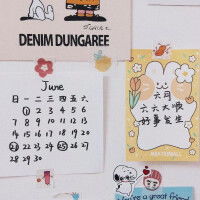 DENIM DUNGAREE
June
日 一 二 三 四 五 六
1 2 3 4 5 6
7 8 9 10 11 12 13
14 15 16 17 18 19 20
21 22 23 24 25 26 27
28 29 30
六月
六六大顺
好事发生
You're a great friend